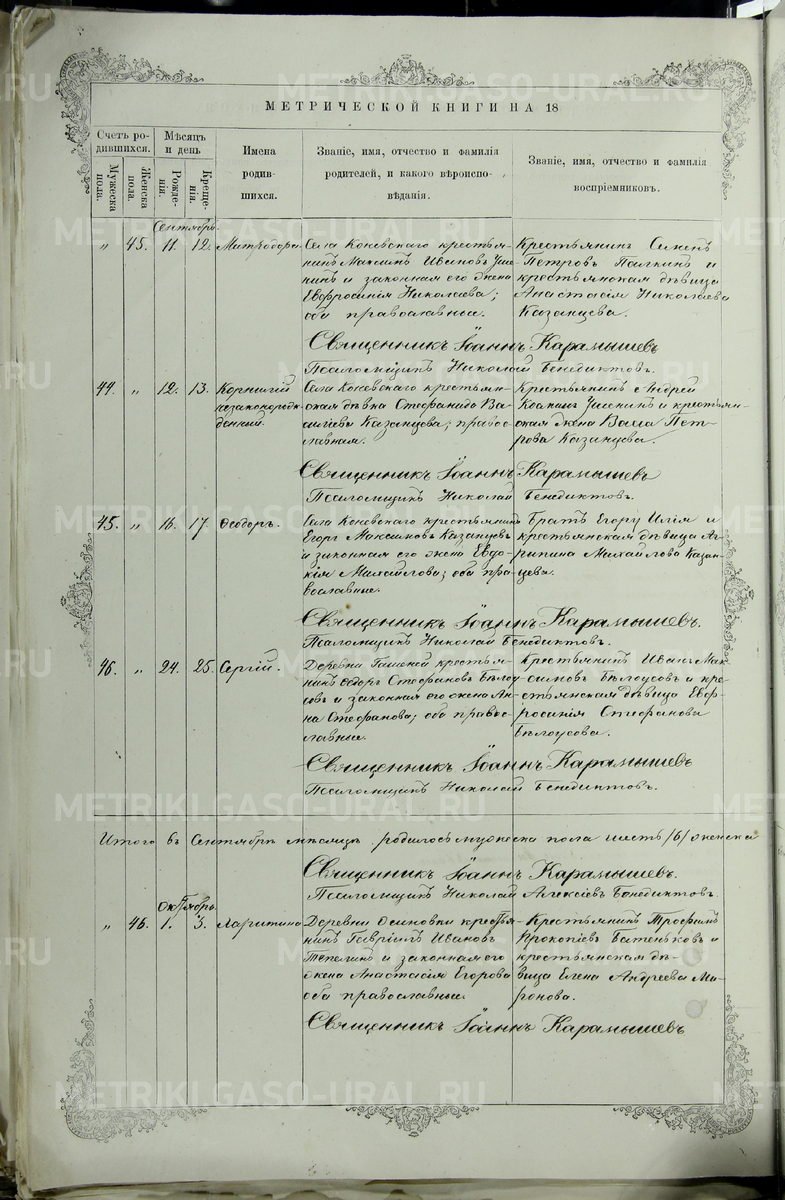 МЕТРИЧЕСКОЙ КНИГИ НА 18
Счетъ ро-
дившихся.
Мѣсяцъ
и день
Мужеска
пола.
Женска
пола.
Рожде-
нія.
Креще-
нія.
Имена
родив-
шихся.
Званіе, имя, отчество и фамилія
родителей, и какого вѣроиспо-
вѣданія.
Званіе, имя, отчество и фамилія
воспріемниковъ.
Сентябрь.
„ 45. 11. 12. Митродора
Села Коневскаго крестья-
нинъ Максимъ Ивановъ
нинъ и законная его жена
Евфросинія Николаева;
оба православные.
Крестьянинъ Семенъ
Петровъ Палкинъ и
крестьянская дѣвица
Анастасія Николаева
Казанцева.
Священникъ Іоаннъ Карамышевъ
Псаломщикъ Николай Бенедиктовъ.
44. „ 12. 13. Корнилій
незаконорож-
денный.
Села Коневскаго крестьян-
ская дѣвка Стефанида Ва-
сильева Казанцева; право-
славная.
Крестьянинъ Андрей
и крестьян-
ская жена Васса Пет-
рова Казанцева.
Священникъ Іоаннъ Карамышевъ
Псаломщикъ Николай Бенедиктовъ.
45. „ 16. 17. Ѳеодоръ.
Села Коневскаго крестьянинъ
Егоръ Максимовъ Казанцевъ
и законная его жена Евдо-
кія Михайлова; оба пра-
вославные.
Братъ Егору Илія и
крестьянская дѣвица Аг-
рипина Михайлова Казан-
цева.
Священникъ Іоаннъ Карамышевъ.
Псаломщикъ Николай Бенедиктовъ.
46. „ 24. 25. Сергій.
Деревни крестья-
нинъ Ѳедоръ Стефановъ Бѣлоу-
совъ и законная его жена Ан-
на Стефанова; оба правос-
лавные.
Крестьянинъ Иванъ Мак-
симовъ Бѣлоусовъ и кре-
стьянская дѣвица Евф-
росинія Стефанова
Бѣлоусова.
Священникъ Іоаннъ Карамышевъ
Псаломщикъ Николай Бенедиктовъ.
Итого въ Сентябрѣ мѣсяцѣ родилось мужеска пола шесть /6/ женска
Священникъ Іоаннъ Карамышевъ.
Псаломщикъ Николай Алексіевъ Бенедиктовъ.
Октябрь.
„ 46. 1. 3. Харитина
Деревни Осиновки крестья-
нинъ Гавріилъ Ивановъ
Тепелинъ и законная его
жена Анастасія Егорова
оба православные.
Крестьянинъ Трофимъ
Прокопіевъ Батеньковъ и
крестьянская дѣ-
вица Елена Андреева Ма-
ронова.
Священникъ Іоаннъ Карамышевъ
METRIKI.GASO-URAL.RU